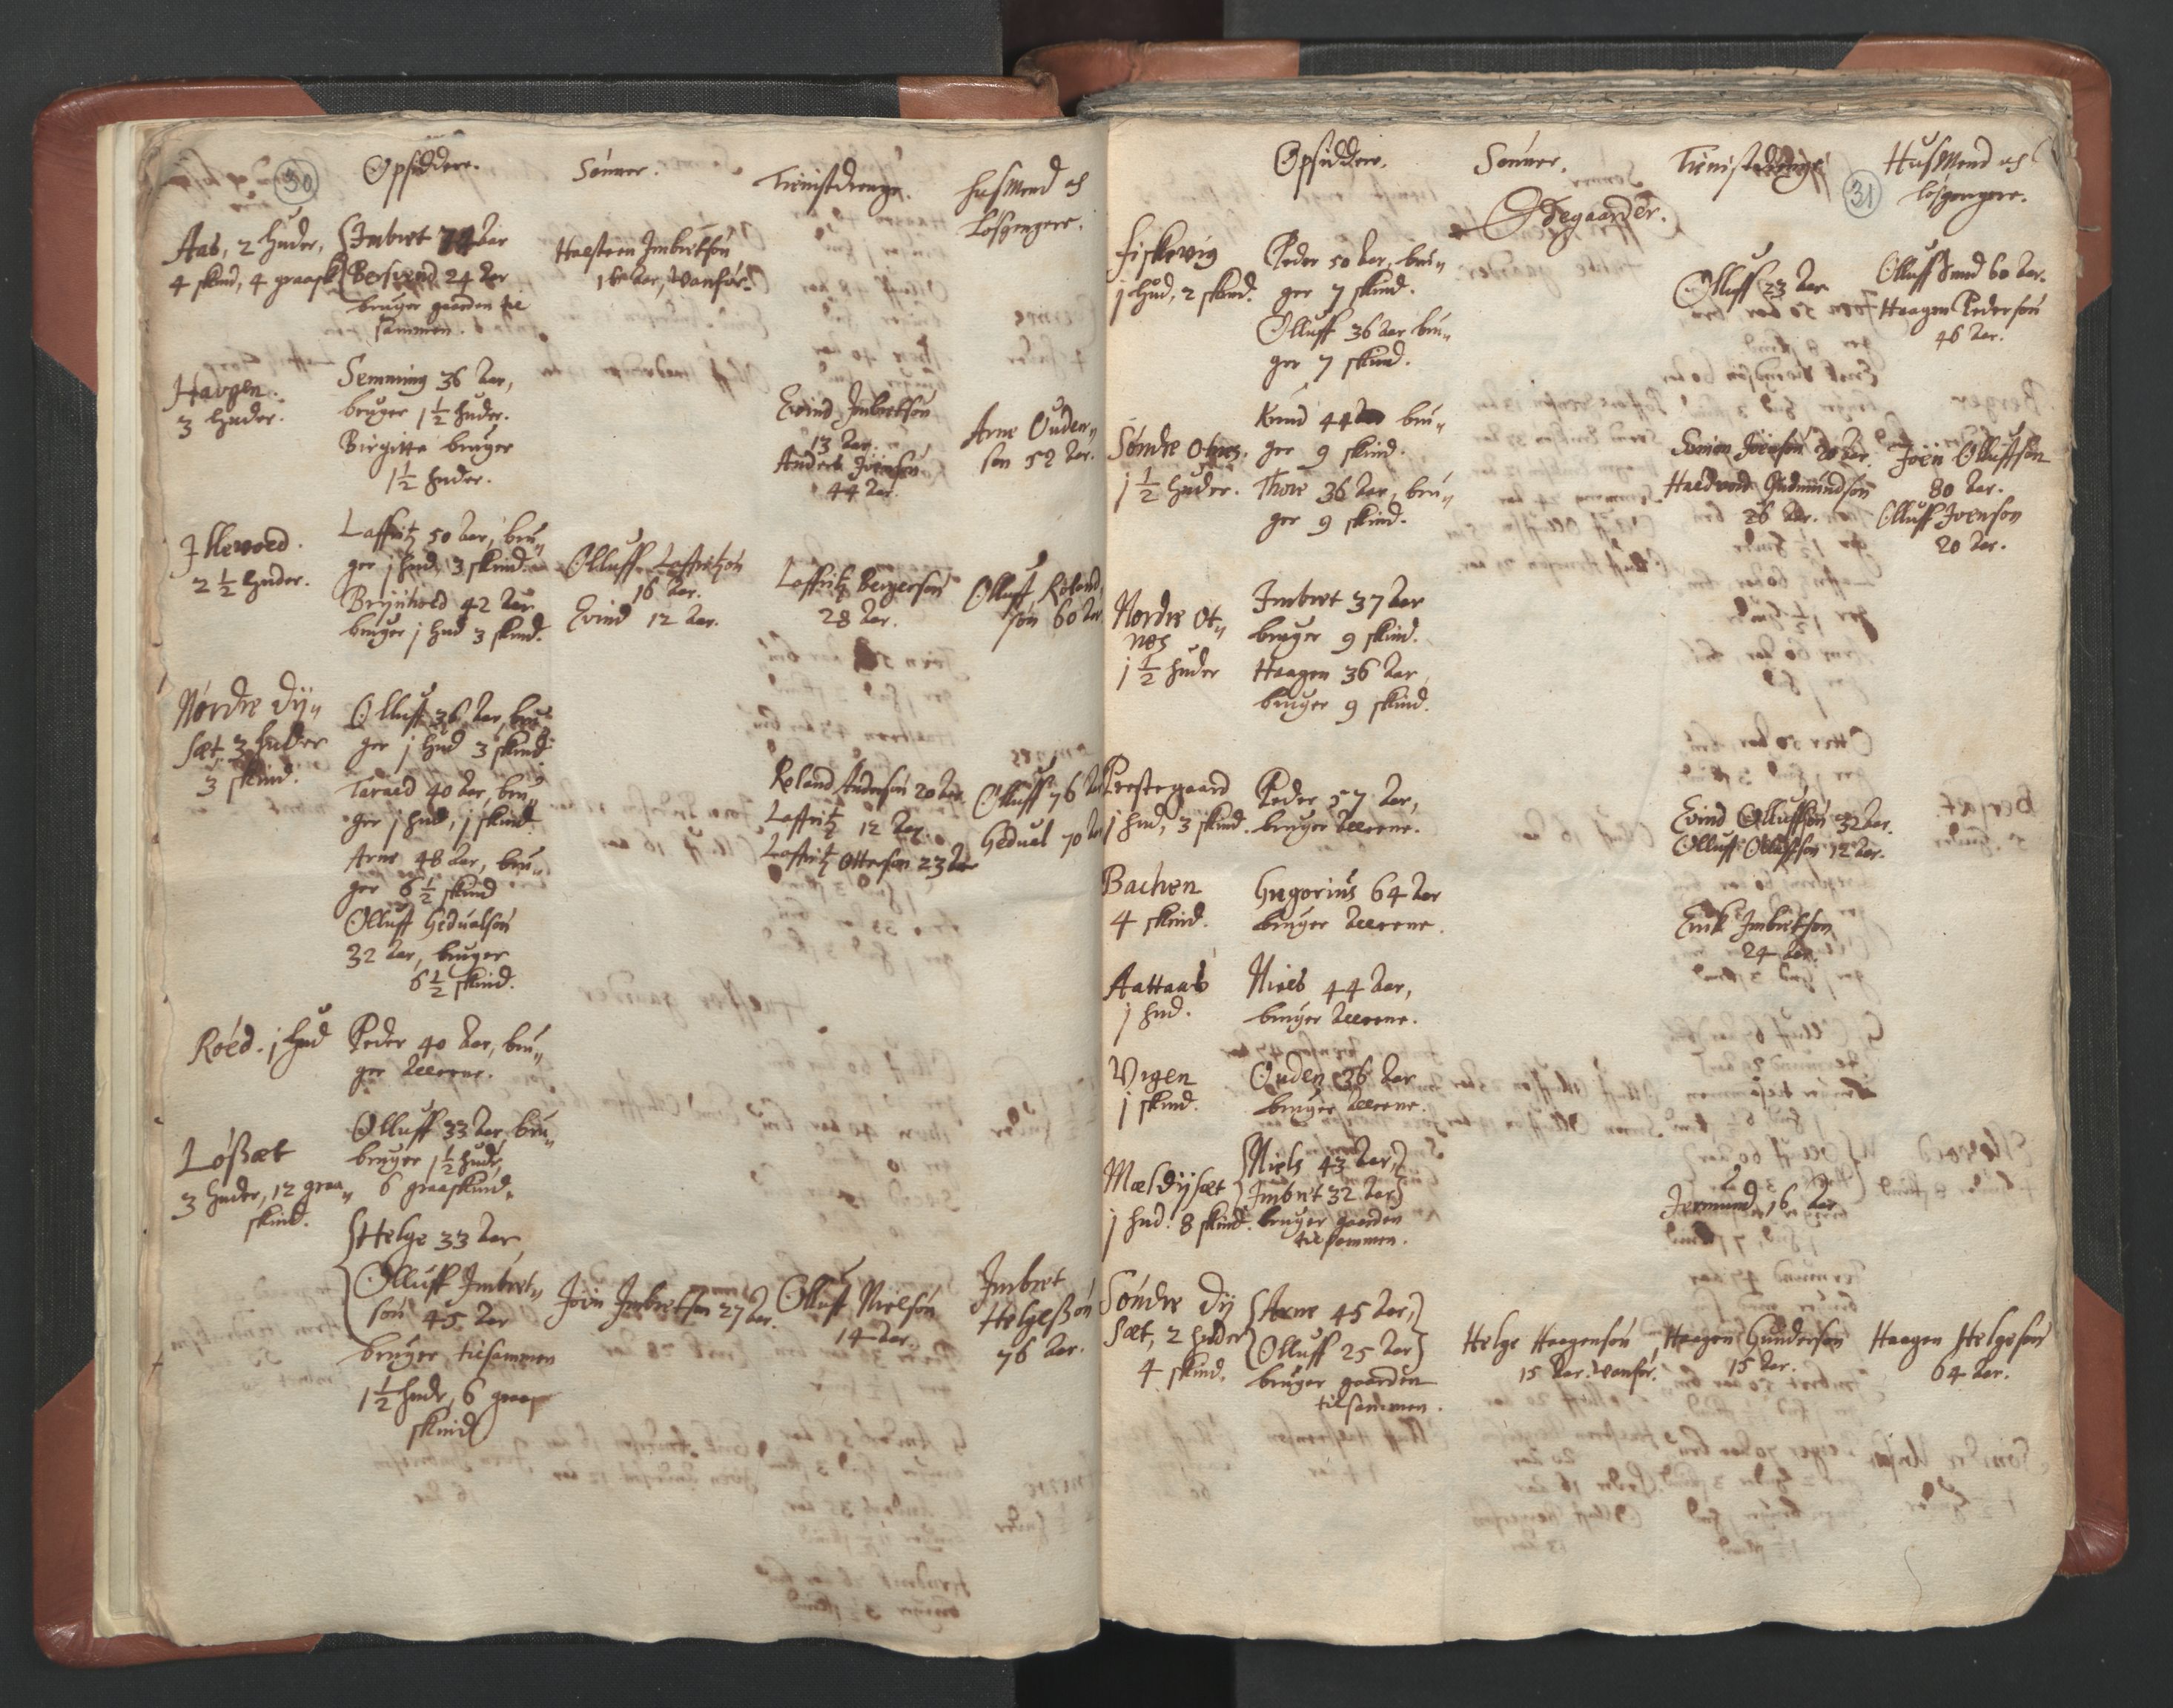 30
Opsiddere.
Sønner.
Tienistdrenge.
HusMend och
Løsgengere.
Aas, 2 huder,
4 skind, 4 graask
Imbret 74 aar
Bersvend 24 aar
bruger gaarden til
sammen.
Halsteen Imbretsøn
16 aar, Vanfør.
Haugen.
3 huder.
Semming 36 aar,
bruger 1 1/2 huder.
Birgitte bruger
1 1/2 huder.
Evind Imbretsøn
13 aar.
Anders Joensøn
44 aar.
Arne Ouden„
søn 52 aar.
Illevold.
2 1/2 huder.
Laffritz 50 aar, bru„
ger j hud, 3 skind.
Brynhold 42 aar
bruger j hud 3 skind.
Olluff Laffritzøn
16 aar.
Evind 12 aar.
Laffritz Bergersøn
28 aar.
Olluff Roland
søn 60 aar
Nordre Dy„
sæt, 3 huder
3 skind.
Olluff 36 aar, bru„
ger j hud 3 skind.
Tarald 40 aar, bru„
ger j hud, j skind.
Arne 48 aar, bru„
ger 6 1/2 skind
Olluff Hedualsøn
32 aar, bruger
6 1/2 skind.
Roland Andersøn 20 aar.
Laffritz 12 aar.
Laffritz Ottersøn 23 aar
Olluff 76 aar
Hedual 70 aar
Roed. j hud
Peder 40 aar, bru„
ger alleene.
Løsæt
3 huder, 12 graa„
skind.
Olluff 33 aar, bru„
bruger 1 1/2 hude,
6 graaskind.
Helge 33 aar
Olluff Imbret„
søn 45 aar
bruger tilsammen
1 1/2 hude, 6 graa„
skind
Joen Imbretsøn 27 aar.
Olluff Nielsøn
14 aar.
Imbret
Helgesøn
76 aar.
31
Opsiddere.
Sønner.
Tienistedrenge
HusMend och
løsgengere.
Ødegaarder.
Fiskevig
j hud, 2 skind.
Peder 50 aar, bru„
ger 7 skind.
Olluff 36 aar bru„
ger 7 skind.
Olluff 23 aar
Olluff Smed 60 aar.
Haagen Pedersøn
46 aar.
Søndre Otnes.
j 1/2 huder.
Knud 44 aar bru„
ger 9 skind.
Thore 36 aar, bru„
ger 9 skind.
Simen Joensøn 20 aar.
Haldvord Gudmundsøn
26 aar.
Joen Olluffsøn
80 aar.
Olluff Joensøn
20 aar.
Nordre Ot„
nes
j 1/2 huder
Imbret 37 aar
bruger 9 skind.
Haagen 36 aar
bruger 9 skind.
Prestegaard
j hud, 3 skind.
Peder 57 aar,
bruger alleene.
Evind Olluffsøn 32 aar.
Olluff Olluffsøn 12 aar.
Bachen
4 skind.
Gregorius 64 aar
bruger alleene.
Erik Imbretsøn
24 aar.
Aattaas
j hud.
Niels 44 aar,
bruger alleene.
Vigen
j skind.
Ouden 36 aar
bruger alleene.
Mæl Dysæt
j hud. 8 skind.
Niels 43 aar,
Imbret 32 aar
bruger gaarden
tilsammen.
Jermund 16 aar
Søndre Dy
sæt, 2 huder
4 skind.
Arne 45 aar,
Olluff 25 aar
bruger gaarden
tilsammen.
Helge Haagensøn
15 aar. vanfør.
Haagen Gundersøn
15 aar.
Haagen Helgesøn
64 aar.